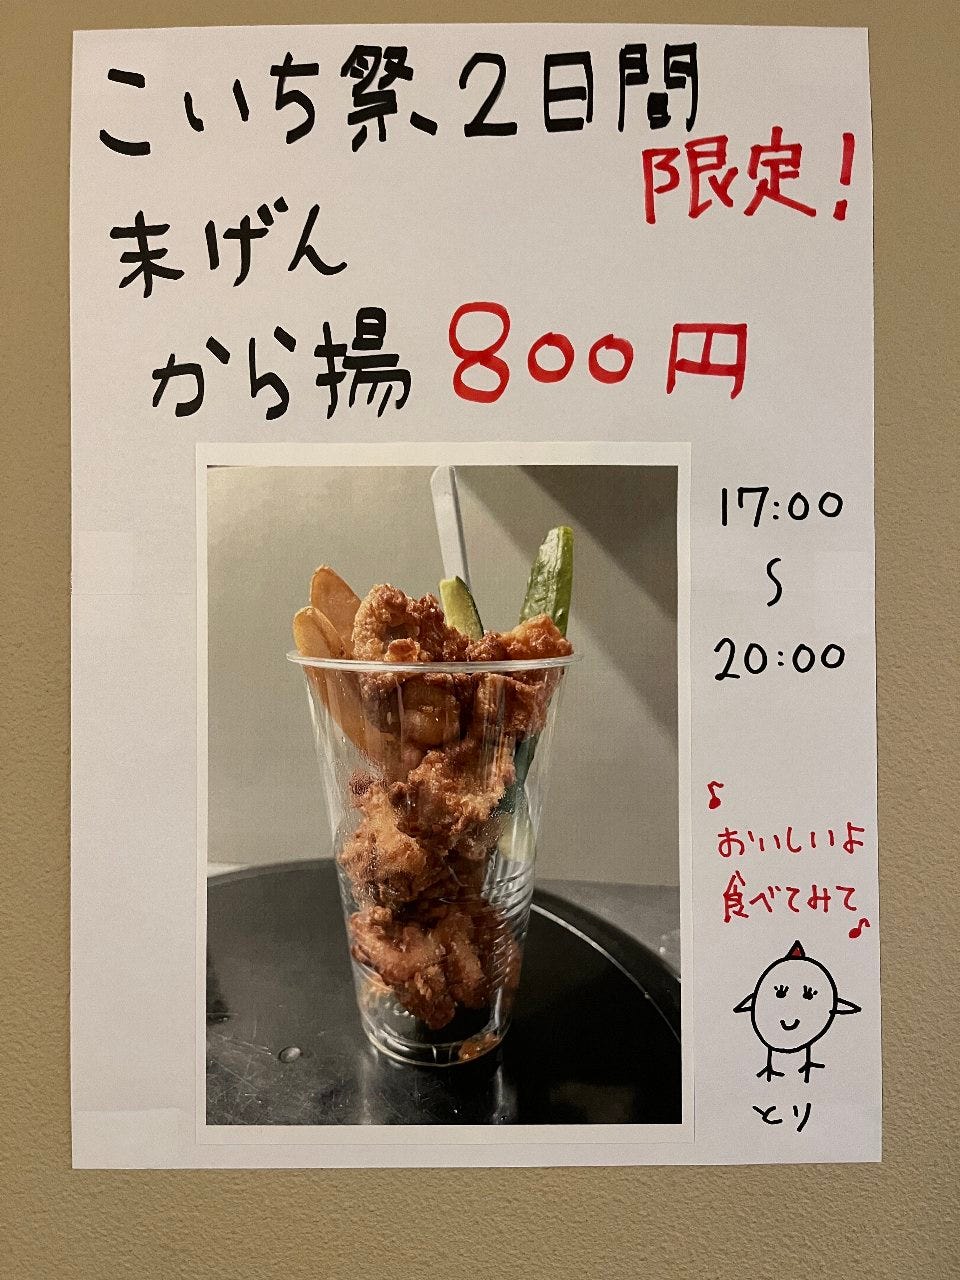 こいち祭、2日間
限定!
末げん
から揚 800円
17:00
〜
20:00
♪
おいしいよ
食べてみて♪
とり